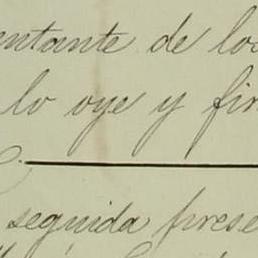 entante de los
lo oye y fir
seguida prese